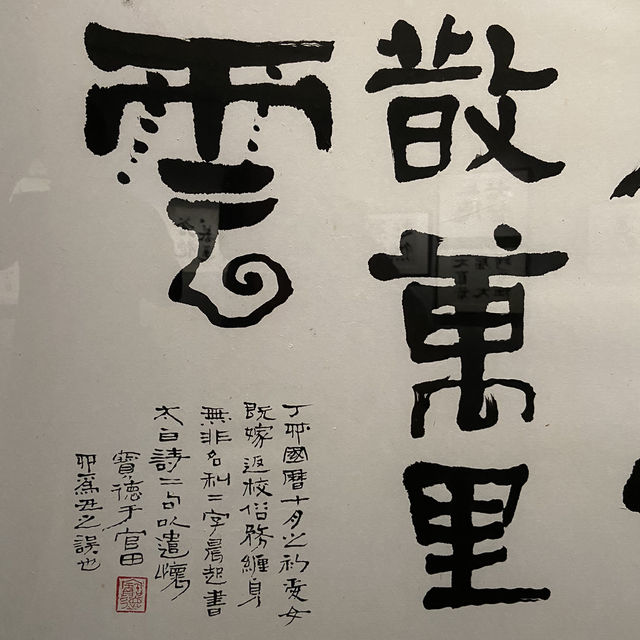 散萬里
雲
丁卯國曆十月之初愛女
既嫁返校俗務纏身
無非名利二字晨起書
太白詩二句以遣懷
寶德于官田
卯為丑之誤也